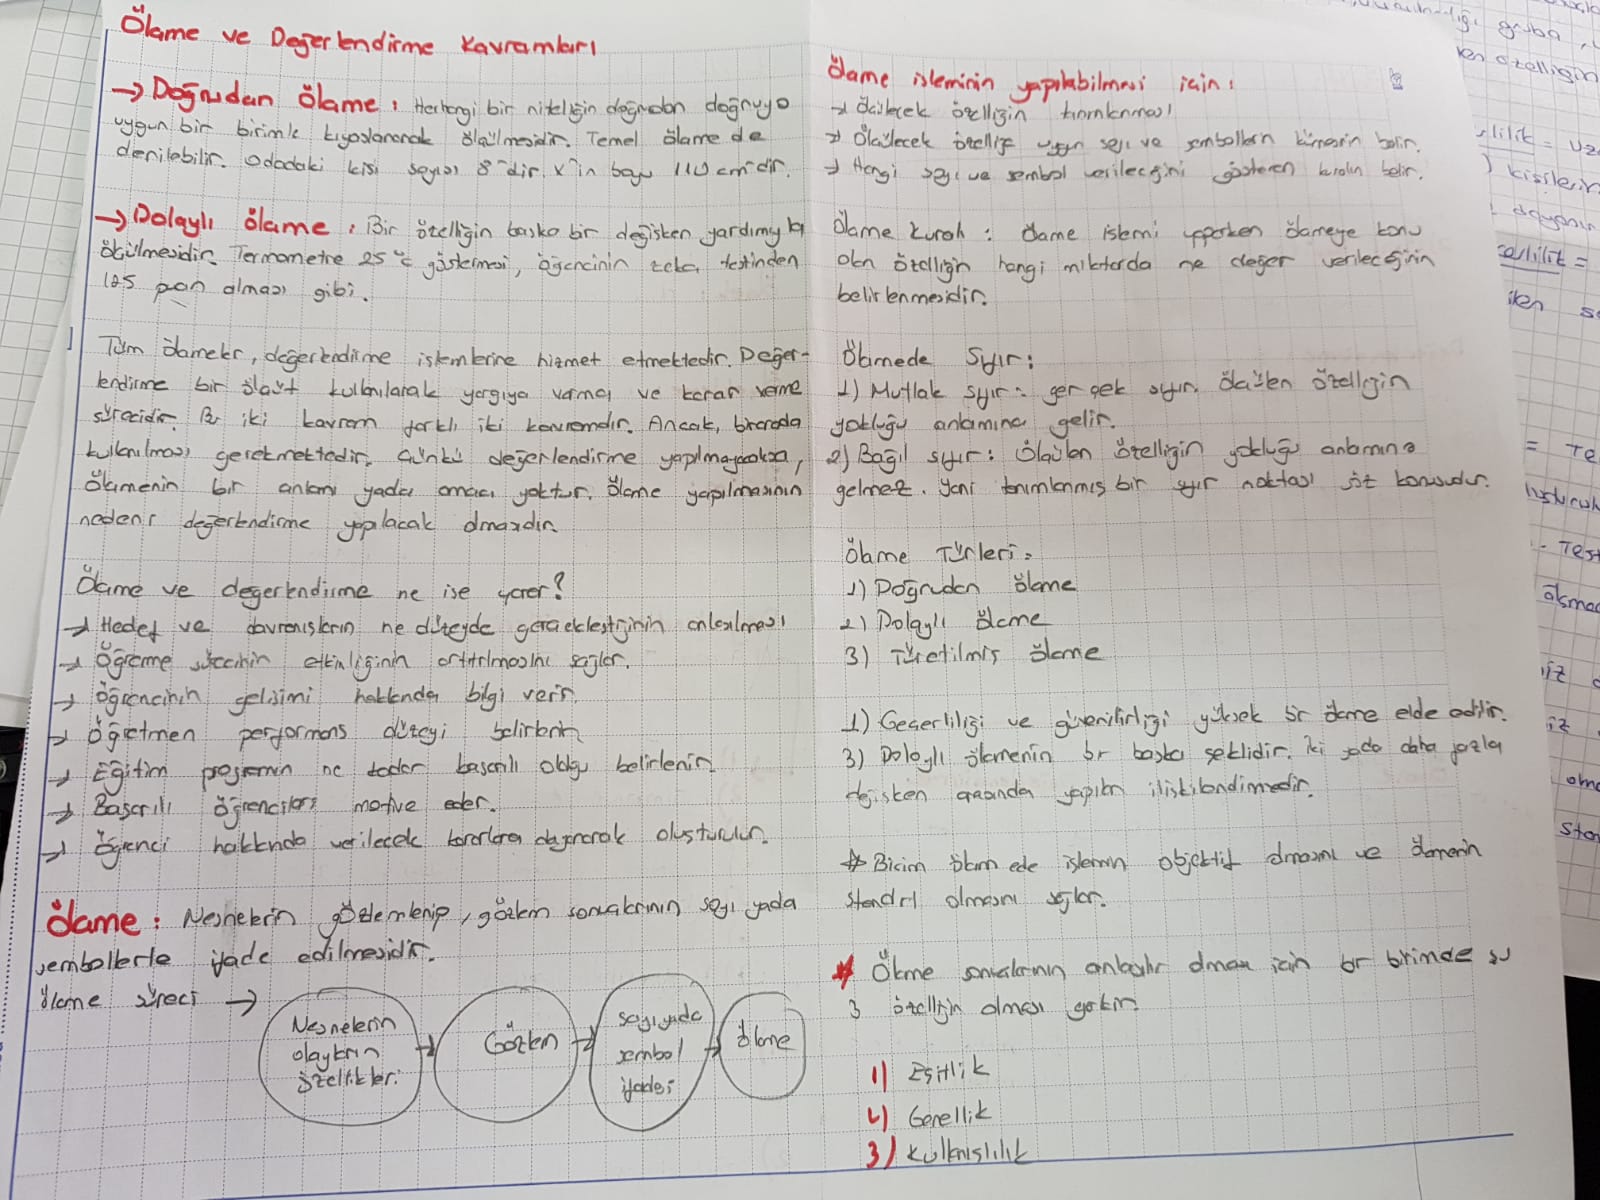 Ölçme ve Değerlendirme Kavramları
→ Doğrudan Ölçme: Herhangi bir niteliğin doğrudan doğruya
uygun bir birimle kıyaslanarak ölçülmesidir. Temel ölçme de
denilebilir. Odadaki kişi sayısı 8'dir. X'in boyu 110 cm'dir.
→ Dolaylı ölçme: Bir özelliğin başka bir değişken yardımıyla
ölçülmesidir. Termometre 25 °C göstermesi, öğrencinin zeka testinden
125 puan alması gibi.
Tüm ölçmeler, değerlendirme işlemlerine hizmet etmektedir. Değer-
lendirme bir ölçüt kullanılarak yargıya varma, ve karar verme
sürecidir. Bu iki kavram farklı iki kavramdır. Ancak, birarada
kullanılması gerekmektedir. Çünkü değerlendirme yapılmayacaksa,
ölçmenin bir anlamı yada amacı yoktur. Ölçme yapılmasının
nedeni değerlendirme yapılacak olmasıdır.
Ölçme ve değerlendirme ne işe yarar?
→ Hedef ve davranışların ne düzeyde gerçekleştiğinin anlaşılması
→ Öğrenme sürecinin etkinliğinin arttırılmasını sağlar.
→ Öğrencinin gelişimi hakkında bilgi verir.
→ Öğretmen performans düzeyi belirlenir.
→ Eğitim programının ne kadar başarılı olduğu belirlenir.
→ Başarılı öğrencileri motive eder.
→ Öğrenci hakkında verilecek kararlara dayanarak oluşturulur.
Ölçme: Nesnelerin gözlemlenip, gözlem sonuçlarının sayı yada
sembollerle ifade edilmesidir.
ölçme süreci →
Nesnelerin
olayların
özellikleri
→ Gözlem →
sayı yada
sembol
ifadesi
→ ölçme
Ölçme işleminin yapılabilmesi için:
→ Ölçülecek özelliğin tanımlanması
→ Ölçülecek özelliğe uygun sayı ve sembollerin kümesinin belir.
→ Hangi sayı ve sembol verileceğini gösteren kuralın belir.
Ölçme Kuralı: Ölçme işlemi yaparken ölçmeye konu
olan özelliğin hangi miktarda ne değer verileceğinin
belirlenmesidir.
Ölçmede Sıfır:
1) Mutlak sıfır: gerçek sıfır. Ölçülen özelliğin
yokluğu anlamına gelir.
2) Bağıl sıfır: Ölçülen özelliğin yokluğu anlamına
gelmez. Yani tanımlanmış bir sıfır noktası söz konusudur.
Ölçme Türleri:
1) Doğrudan ölçme
2) Dolaylı ölçme
3) Türetilmiş ölçme
1) Geçerliliği ve güvenilirliği yüksek bir ölçme elde edilir.
3) Dolaylı ölçmenin bir başka şeklidir. İki yada daha fazla
değişken arasında yapılan ilişkilendirmedir.
* Birim ölçmede işlemin objektif olmasını ve ölçmenin
standart olmasını sağlar.
* Ölçme sonuçlarının anlaşılır olması için bir birimde şu
3 özelliğin olması gerekir.
1) Eşitlik
2) Genellik
3) Kullanışlılık